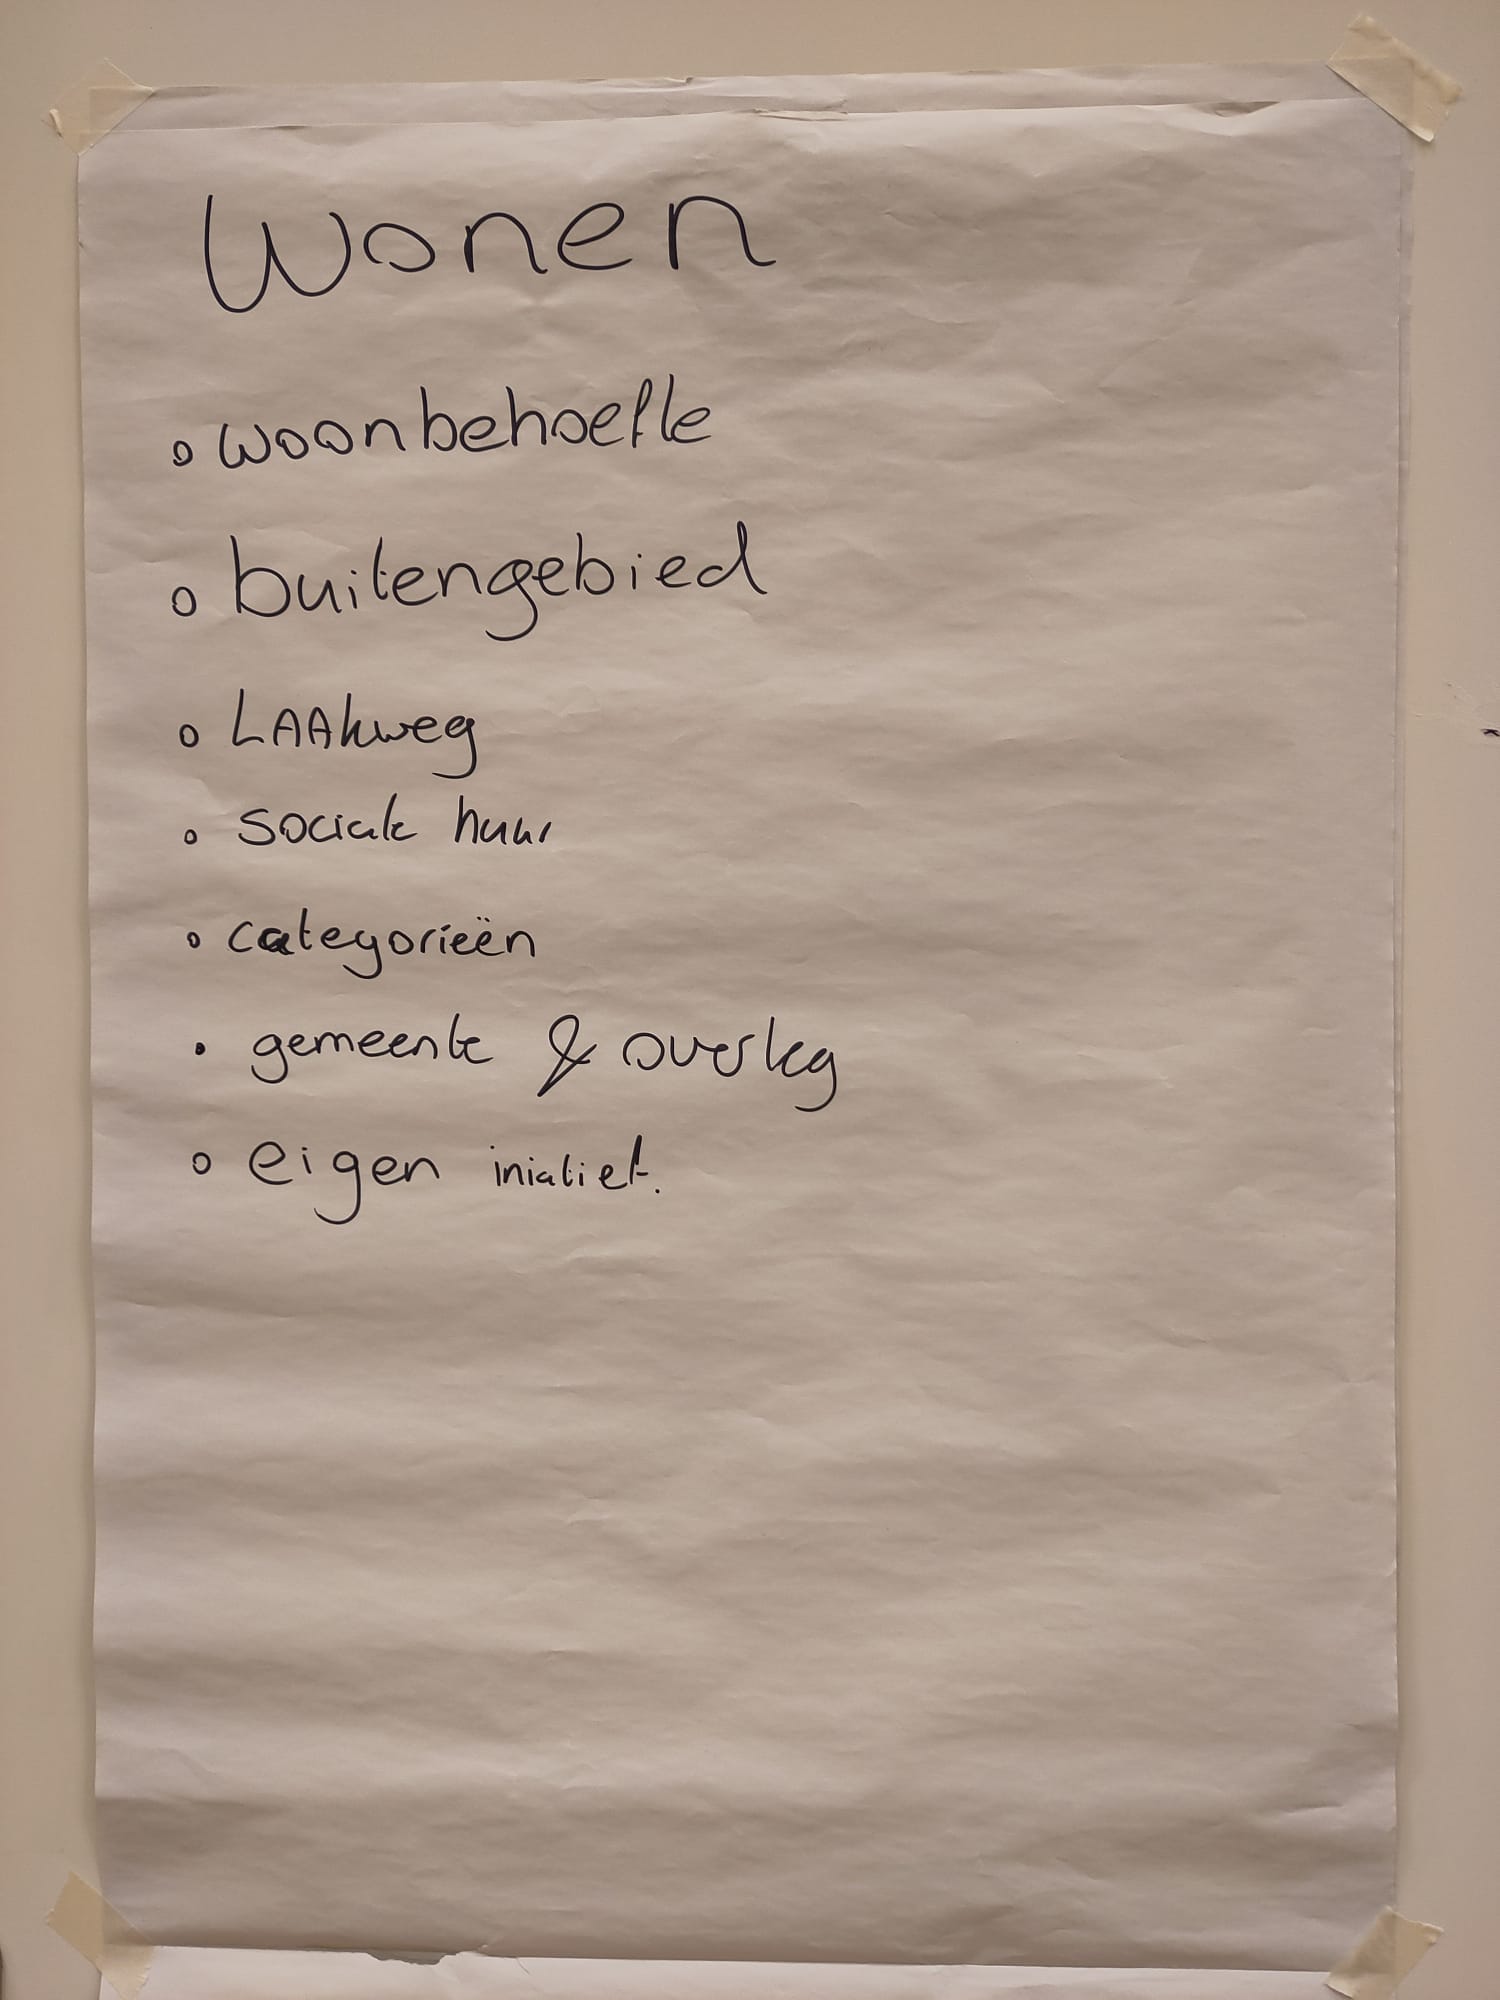 Wonen
o woonbehoefte
o buitengebied
o LAAkweg
o sociale huur
o categorieën
• gemeente & overleg
o eigen iniatief.